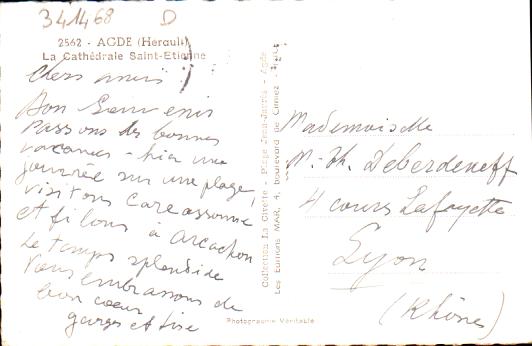 341468 D
2562 - AGDE (Herault)
La Cathédrale Saint-Etienne
Chers amis
Bon Souvenir
Passons des bonnes
vacances - hier une
journée sur une plage,
visitons Carcassonne
et filons à Arcachon
Le temps splendide
Vous embrassons de
bon coeur
Photographie Véritable
Collection La Cigette - Plage Jean-Jarris - Agde
Les Editions MAR, 4, boulevard de Cimiez
Mademoiselle
M. Th. Deberdeneff
4 cours Lafayette
Lyon
(Rhône)